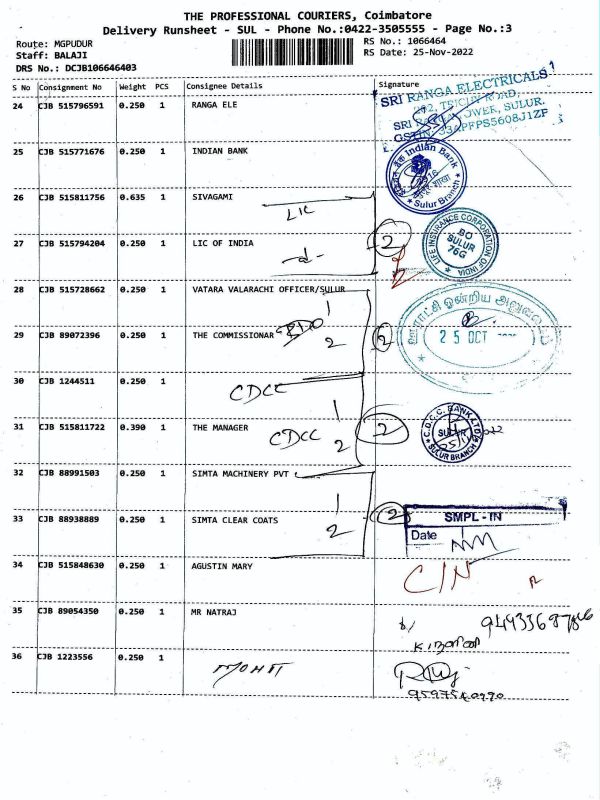 THE PROFESSIONAL COURIERS, Coimbatore
Delivery Runsheet - SUL - Phone No.:0422-3505555 - Page No.:3
Route: MGPUDUR RS No.: 1066464
Staff: BALAJI RS Date: 25-Nov-2022
DRS No.: DCJB106646403
S No Consignment No Weight PCS Consignee Details Signature
24 CJB 515796591 0.250 1 RANGA ELE
SRI RANGA ELECTRICALS
TRICHY ROAD,
SULUR.
25 CJB 515771676 0.250 1 INDIAN BANK
Indian Bank
Sulur Branch
26 CJB 515811756 0.635 1 SIVAGAMI
LIC
27 CJB 515794204 0.250 1 LIC OF INDIA
2
LIFE INSURANCE CORPORATION OF INDIA
BO
SULUR
76G
28 CJB 515728662 0.250 1 VATARA VALARACHI OFFICER/SULUR
1
29 CJB 89072396 0.250 1 THE COMMISSIONAR BDO
2
2
ஊராட்சி ஒன்றிய அலுவலகம்
25 OCT
30 CJB 1244511 0.250 1
CDCC
1
31 CJB 515811722 0.390 1 THE MANAGER
CDCC 2
2
C.D.C.C. BANK LTD
SULUR
SULUR BRANCH
32 CJB 88991503 0.250 1 SIMTA MACHINERY PVT L
1
33 CJB 88938889 0.250 1 SIMTA CLEAR COATS
2
2
SMPL-IN
Date
34 CJB 515848630 0.250 1 AGUSTIN MARY
C/N
35 CJB 89054350 0.250 1 MR NATRAJ
36 CJB 1223556 0.250 1